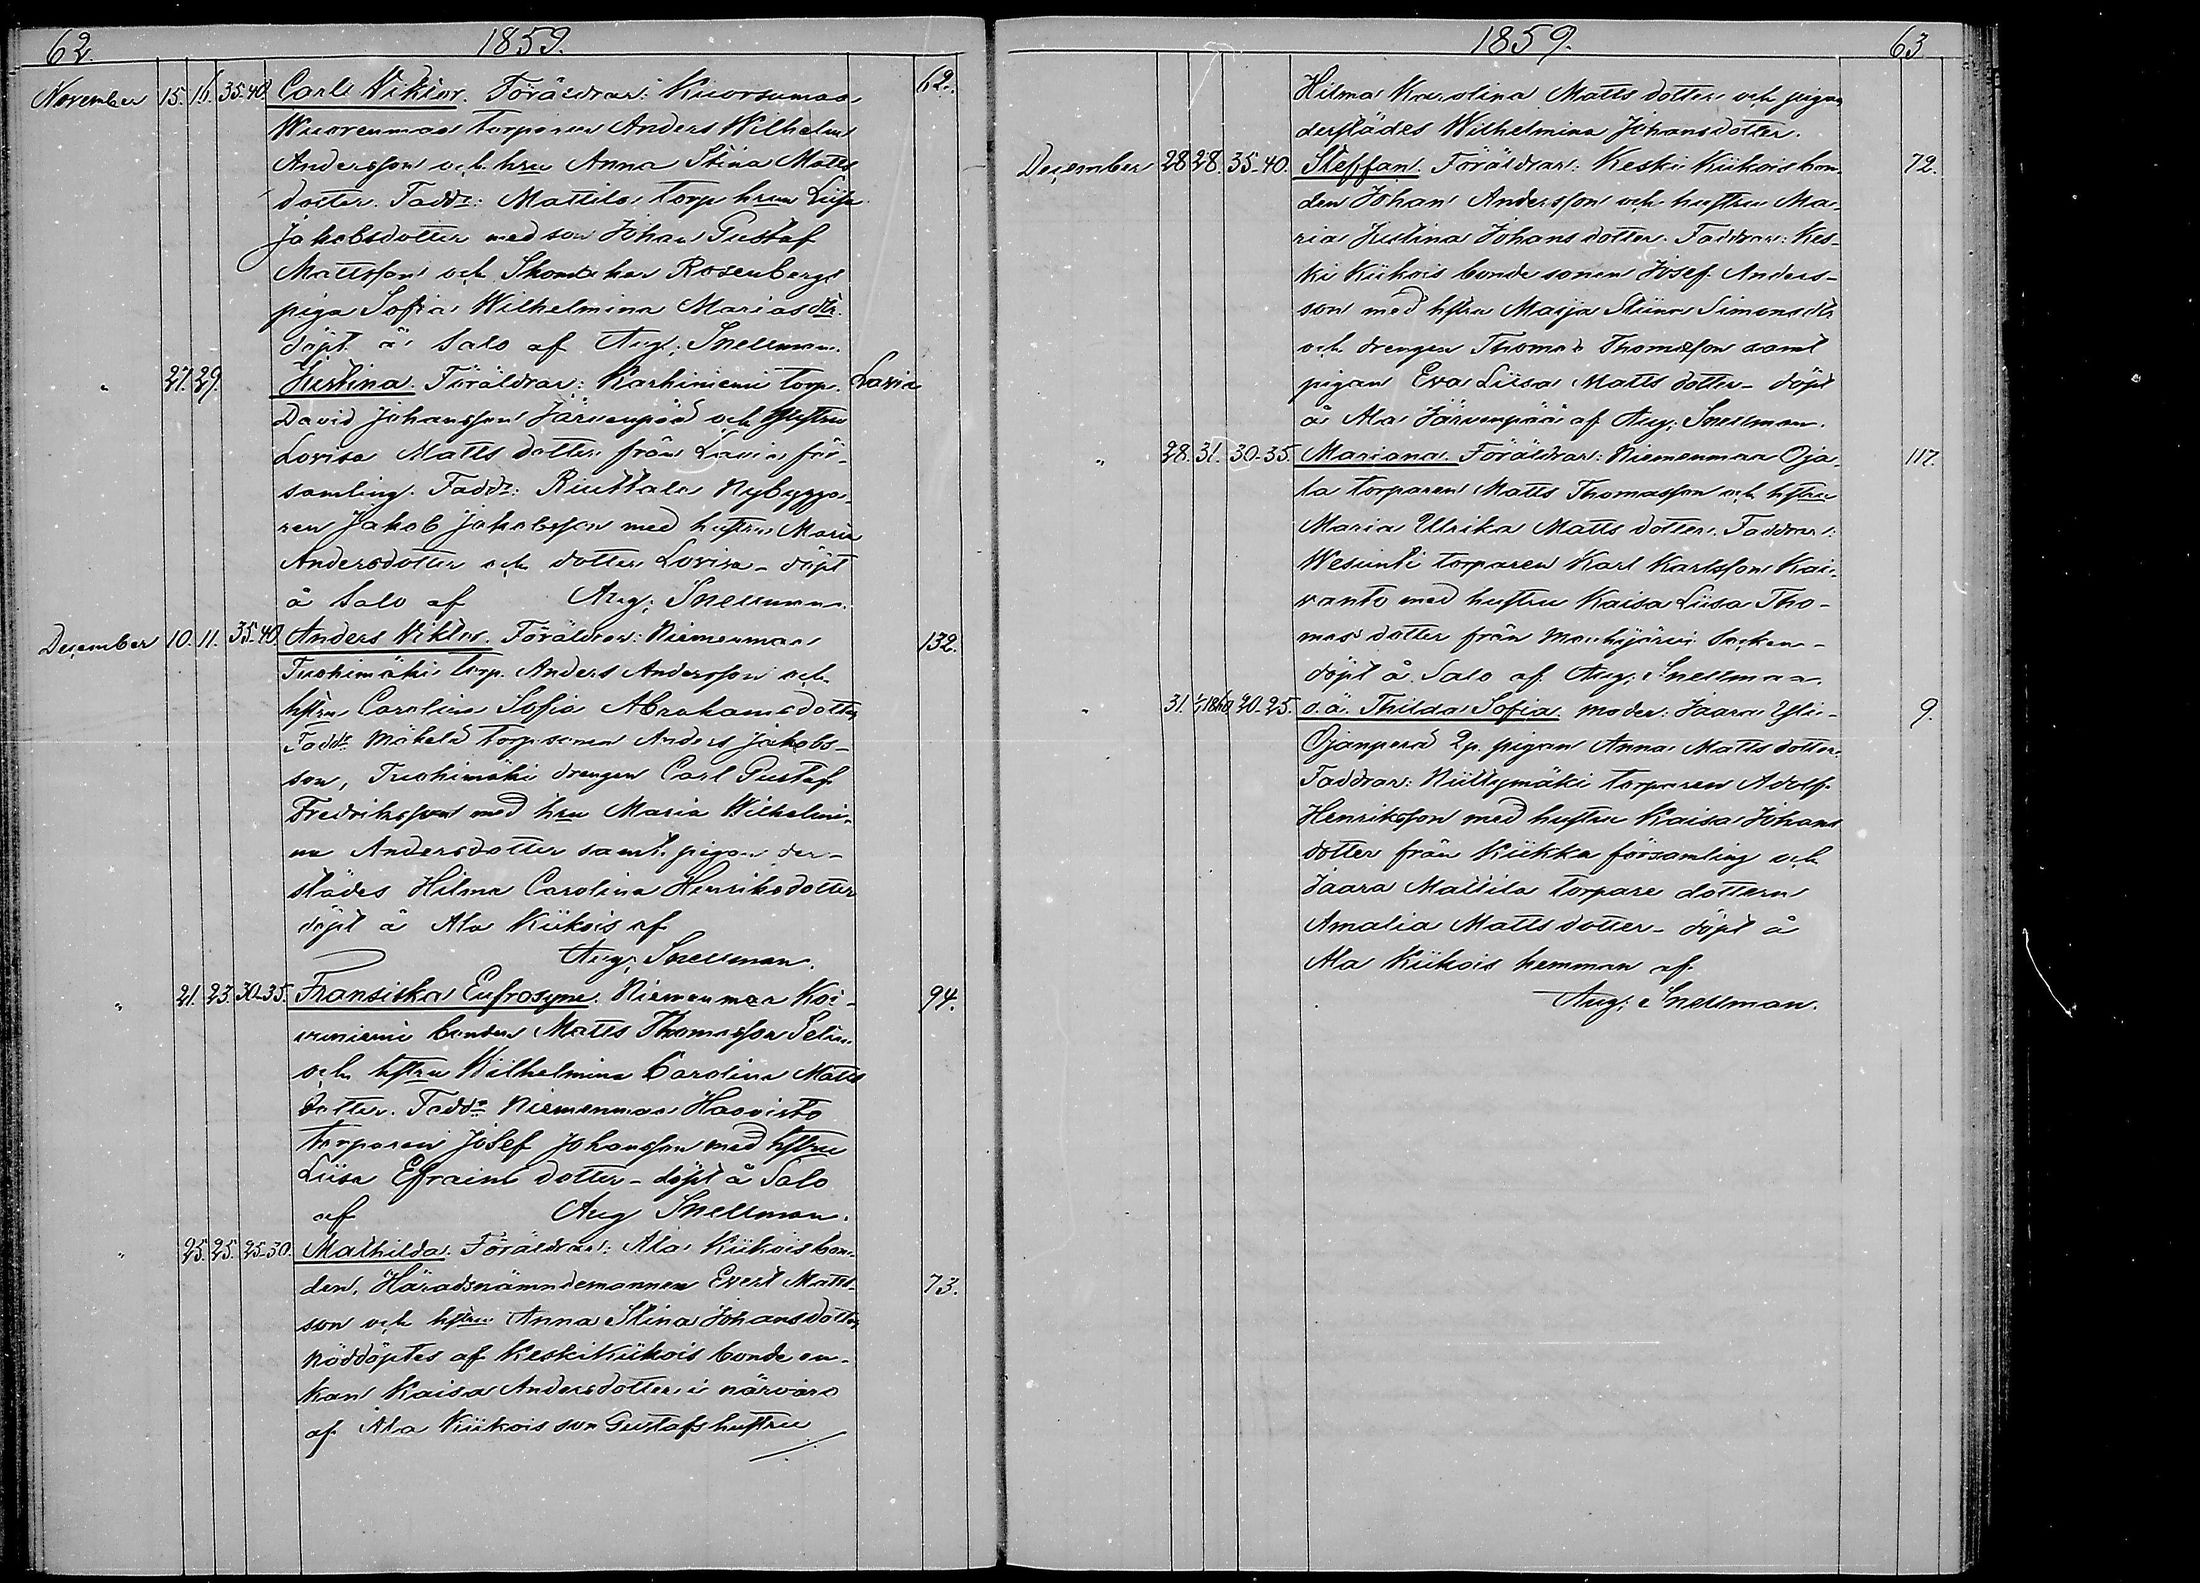 62. 1859.
November 15. 16. 35-40. Carl Viktor. Föräldrar: Kuorsumaa 62.
Wuorenmaa torparen Anders Wilhelm
Andersson och hru Anna Stina Matts
dotter. Faddr: Mattila torp hrun Liisa
Jakobsdotter med son Johan Gustaf
Mattsson och Skomakar Rosenbergs
piga Sofia Wilhelmina Mariasdtr.
döpt å Salo af Aug. Snellman.
" 27. 29. Justina. Föräldrar: Karhiniemi torp. Lavia
David Johansson Järvenpää och hustru
Lovisa Matts dotter från Lavia för-
samling. Faddr: Riuttala Nybygga-
ren Jakob Jakobsson med hustru Maria
Andersdotter och dotter Lovisa - döpt
å Salo af Aug. Snellman.
December 10. 11. 35-40. Anders Viktor. Föräldrar: Niemenmaa 132.
Tuohimäki torp. Anders Andersson och
hstru Carolina Sofia Abrahamsdotter
Faddr Mäkelä torpsonen Anders Jakobs-
son, Tuohimäki drengen Carl Gustaf
Fredriksson med hru Maria Wilhelmi-
na Andersdotter samt pigan der-
städes Hilma Carolina Henriksdotter
döpt å Ala Kiikois af
Aug. Snellman.
" 21. 23. 30-35. Fransiska Eufrosyne. Niemenmaa Koi- 94.
vuniemi bonden Matts Thomasson Selin
och hstru Wilhelmina Carolina Matts
dotter. Faddr Niemenmaa Haavisto
torparen Josef Johansson med hstru
Liisa Efraims dotter - döpt å Salo
af Aug Snellman.
" 25. 25. 25-30. Mathilda. Föräldrar: Ala Kiikois bon-
den, Häradsnämndemannen Evert Matts- 73.
son och hstru Anna Stina Johansdotter
Nöddöptes af Keski Kiikois bonde en-
kan Kaisa Andersdotter i närvaro
af Ala Kiikois son Gustafs hustru
1859. 63.
Hilma Karolina Matts dotter och pigan
derstädes Wilhelmina Johansdotter.
December 28 28. 35-40. Steffan. Föräldrar: Keski Kiikois bon- 72.
den Johan Andersson och hustru Ma-
ria Justina Johans dotter. Faddrar: Kes-
ki Kiikois bondesonen Josef Anders-
son med hstru Maija Stiina Simonsdtr
och drengen Thomas Thomasson samt
pigan Eva Liisa Matts dotter - döpt
å Ala Järvenpää af Aug. Snellman.
" 28. 31. 30-35. Mariana. Föräldrar: Niemenmaa Oja- 117.
la torparen Matts Thomasson och hstru
Maria Ulrika Matts dotter. Faddrar:
Wesunti torparen Karl Karlsson Kai-
vanto med hustru Kaisa Liisa Tho-
mas dotter från Mouhijärvi Socken -
döpt å Salo af Aug. Snellman.
" 31. 1/1 1860 20-25. o.ä. Thilda Sofia. moder: Jaara Yli- 9.
Ojanperä Ip. pigan Anna Matts dotter.
Faddrar: Niittymäki torparen Adolf
Henriksson med hustru Kaisa Johans
dotter från Kiikka församling och
Jaara Mattila torpare dottern
Amalia Matts dotter - döpt å
Ala Kiikois hemman af
Aug. Snellman.